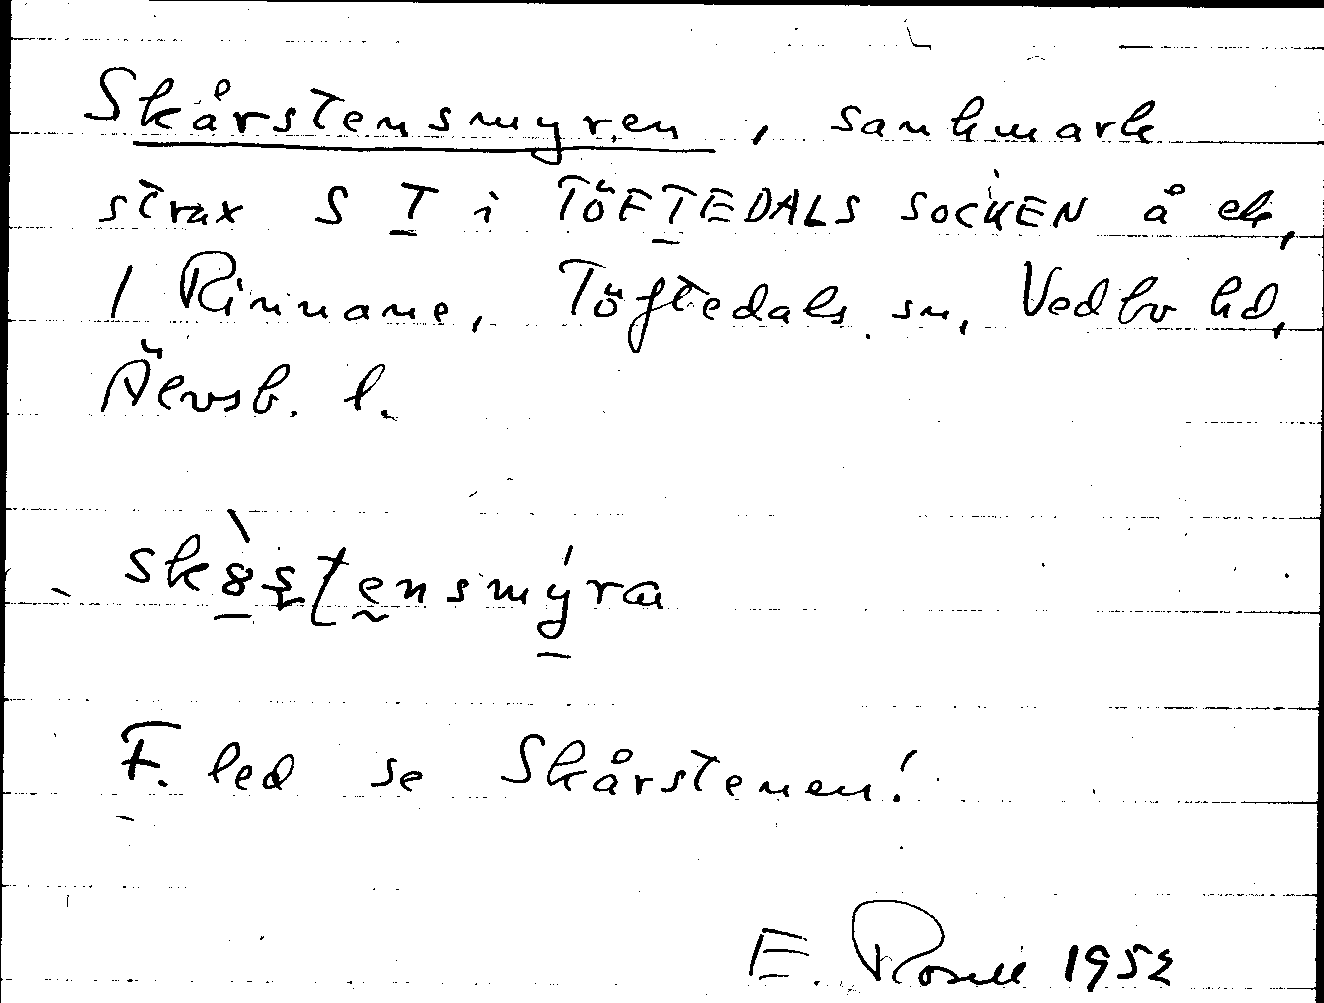 Skårstensmyren, sankmark
strax S T i TÖFTEDALS SOCKEN å ek,
1 Rinnane, Töftedals sn, Vedbo hd,
Älvsb. l.
skòstensmýra
F. led se Skårstenen!
E. Rosell 1952